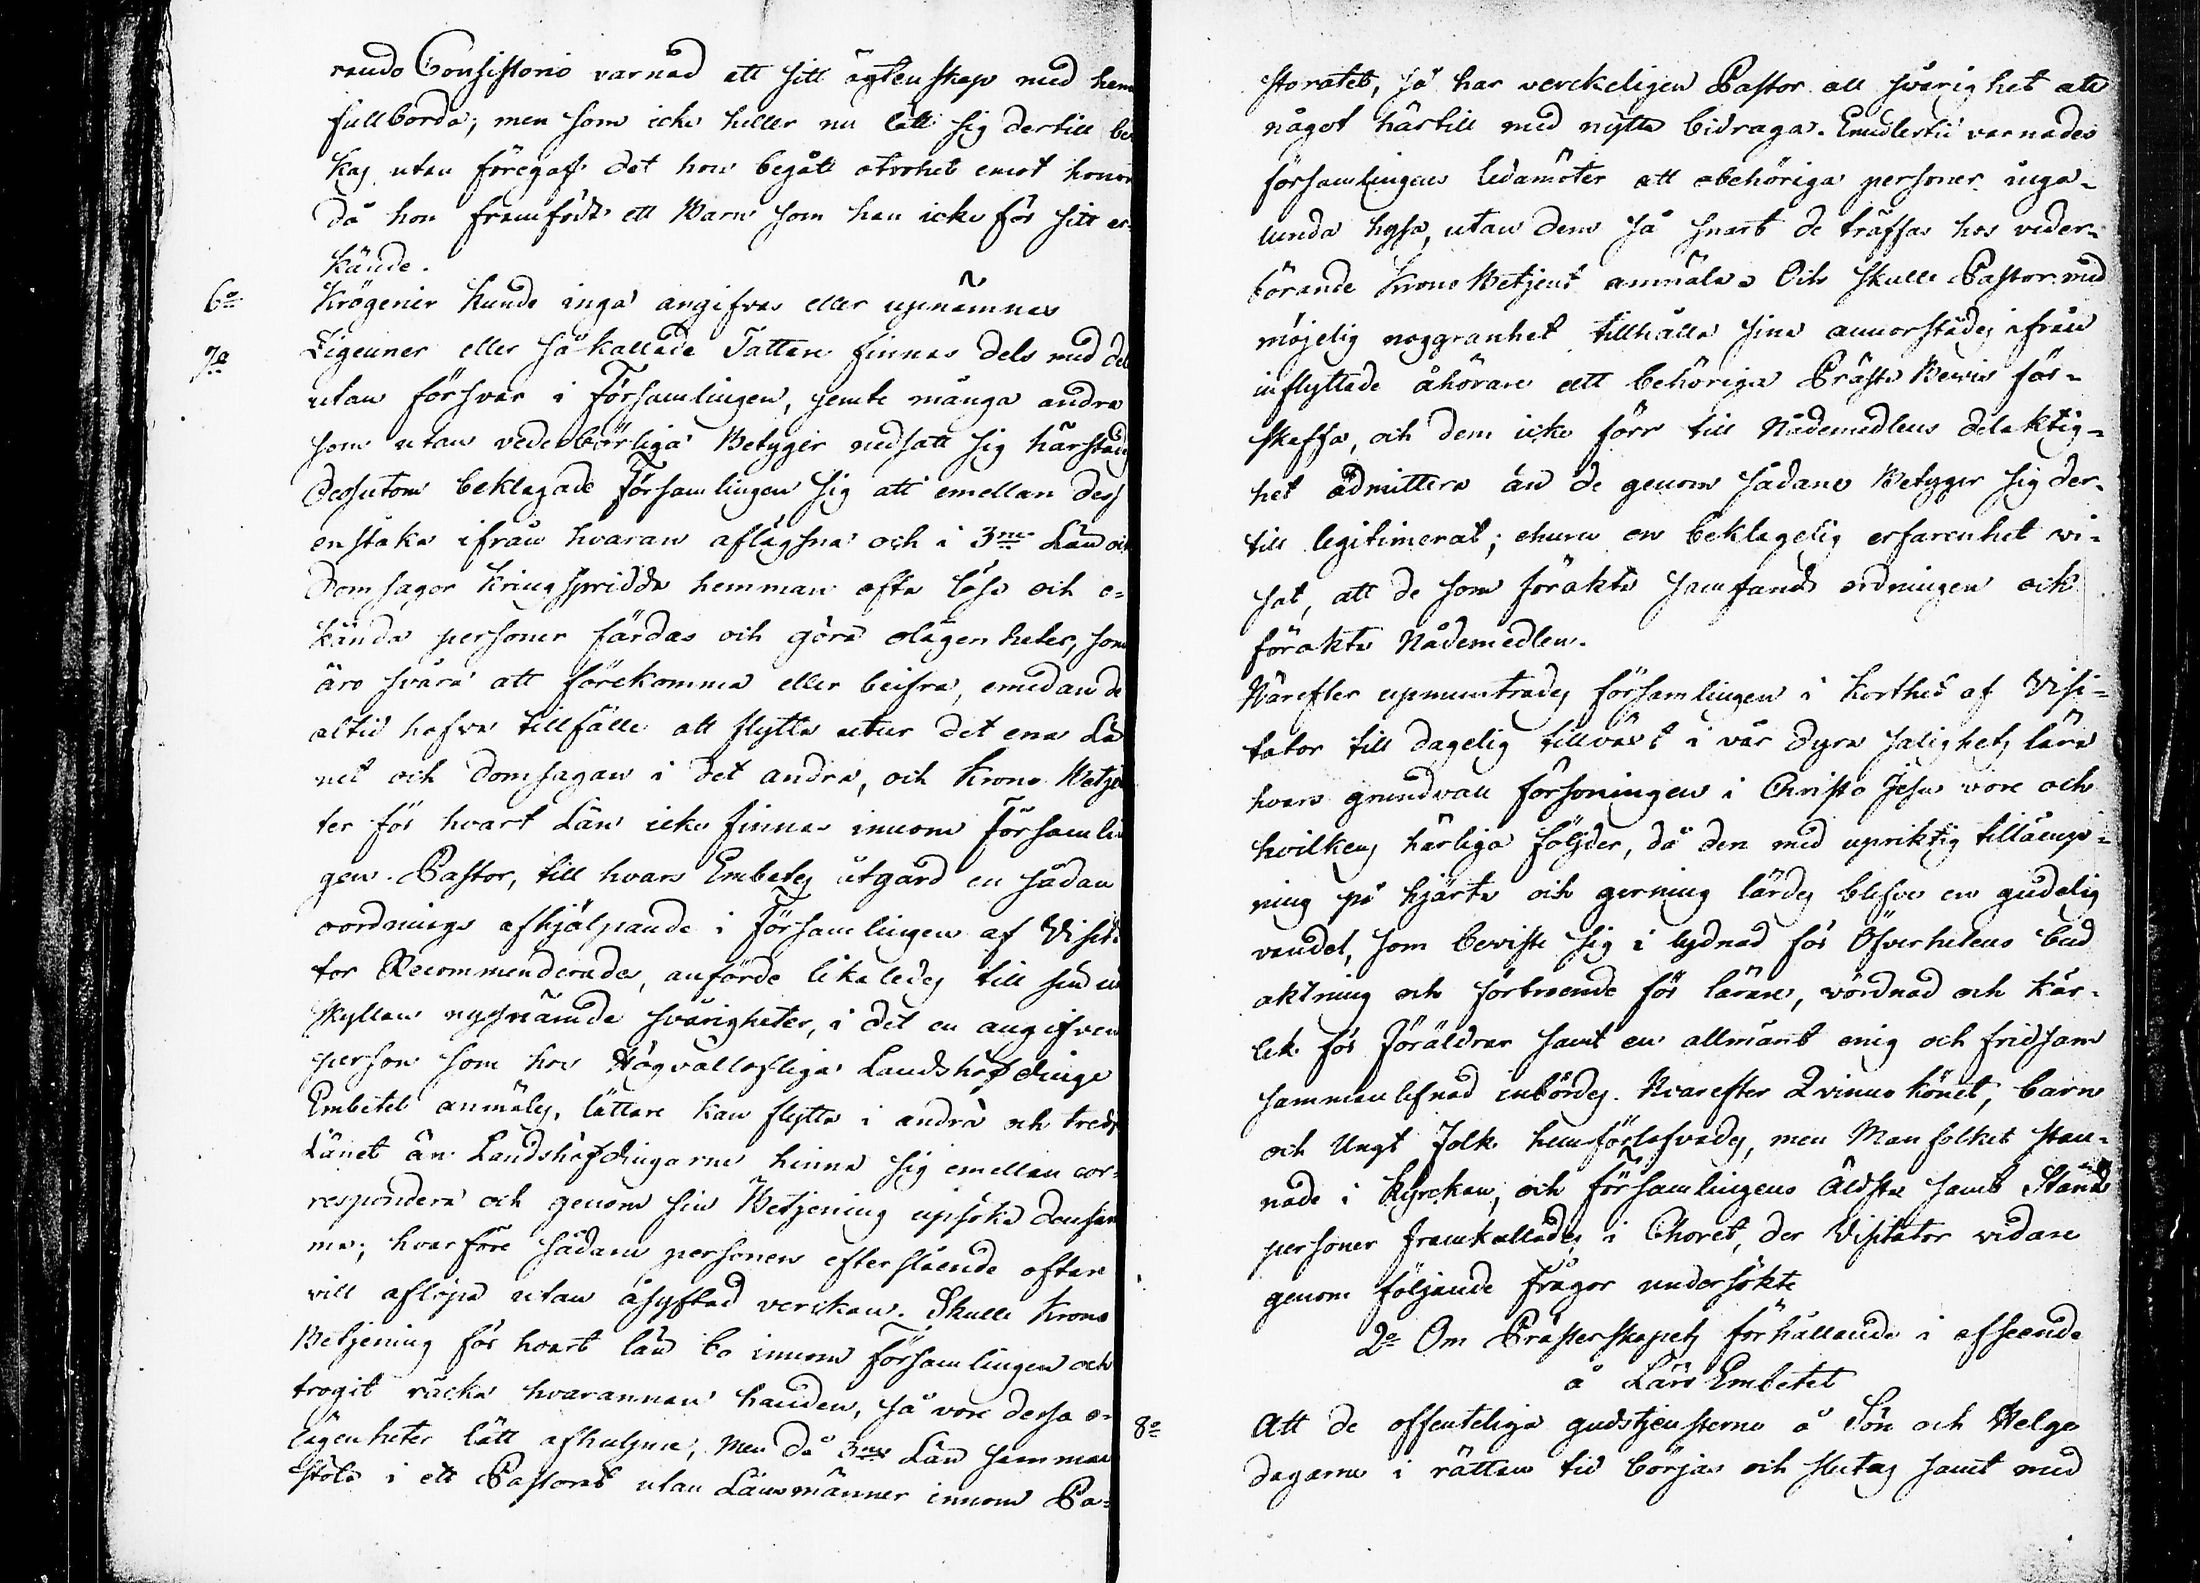 rando Consistorio varnad att sitt ägtenskap med hen
fullborda; men som icke heller nu lätt sig dertill be
kas utan föregaf det hon begått otrohet emot honom
då hon framfödt ett Barn som han icke för sitt er-
kände.
6o Krögerier kunde inga angifvas eller upnämnas
7o Zigeuner eller så kallade Tattare finnas dels med dels
utan försvar i Församlingen, jemte många andra
som utan vederbörliga Betyger nedsatt sig härstäds
Dessutom beklagade Församlingen sig att emellan dess
enstaka ifrån hvaran aflägsna och i 3ne Län och
Domsagor kringspridda hemman ofta löse och o-
kända personer färdas och göra olägenheter, som
äro svåra att förekomma eller beifra, emedan de
altid hafva tillfälle att flytta utur det ena Lä
net och domsagan i det andra, och Krono Betjen
ter för hvart Län icke finnas innom Församlin
gen. Pastor, till hvars Embetes åtgärd en sådan
oordnings afhjälpande i Församlingen af Visita
tor Recommenderades, anförde likaledes till sin ur
skyllan nyssnämde svårigheter, i det en angifven
person som hos Högvällofliga Landshöfdinge
Embetet anmäles, lättare kan flytta i andra och tredje
Länet än Landshöfdingarne hinna sig emellan cor-
respondera och genom sin Betjening upsöka densam
ma; hvarföre sådane personers efterslående oftare
vill aflöpa utan åsyftad verckan. Skulle Krono
Betjening för hvart län bo innom Församlingen och
trogit räcka hvarannan handen, så vore dessa o-
lägenheter lätt afhulpne; Men då 3ne Län samman
stöta i ett Pastorat utan Länsmänner innom Pa-
storatet, så har verckeligen Pastor all svårighet att
något härtill med nytta bidraga. Emedlertid varnades
församlingens ledamöter att obehöriga personer inga-
lunda hysa, utan dem så snart de träffas hos veder-
börande Krono Betjent anmäla. Och skulle Pastor med
möjelig noggranhet tillhålla sina annorstädes ifrån
inflyttade åhörare att behöriga Prästa Bevis för-
skaffa, och dem icke förr till Nådemedlens delaktig-
het admittera än de genom sådane Betyger sig der-
till legitimerat; ehuru en beklagelig erfarenhet vi-
sat, att de som förakta samfunds ordningen ock
förakta Nådemedlen.
Härefter upmuntrades församlingen i korthet af Visi-
tator till dagelig tillväxt i vår dyra salighets lära
hvars grundvall försoningen i Christo Jesu vore och
hvilkens härliga följder, då den med upriktig tillämp-
ning på hjärta och gerning lärdes blefvo en gudelig
vandel, som beviste sig i lydnad för Öfverhetens bud
aktning och förtroende för lärare, vördnad och kär-
lek för Föräldrar samt en allmänt enig och fridsam
sammanlefnad inbördes. Hvarefter Qvinno könet, barn
och Ungt Folk hemförlofvades, men Manfolket stan-
nade i Kyrckan, och församlingens Äldsta samt Stånds
personer framkallades i Choret, der Visitator vidare
genom följande frågor undersökte
2o Om Prästerskapets förhållande i afseende
å Läro Embetet
8o Att de offenteliga gudstjensterne å Sön och Helge
dagarne i rättan tid börjas och slutas samt med